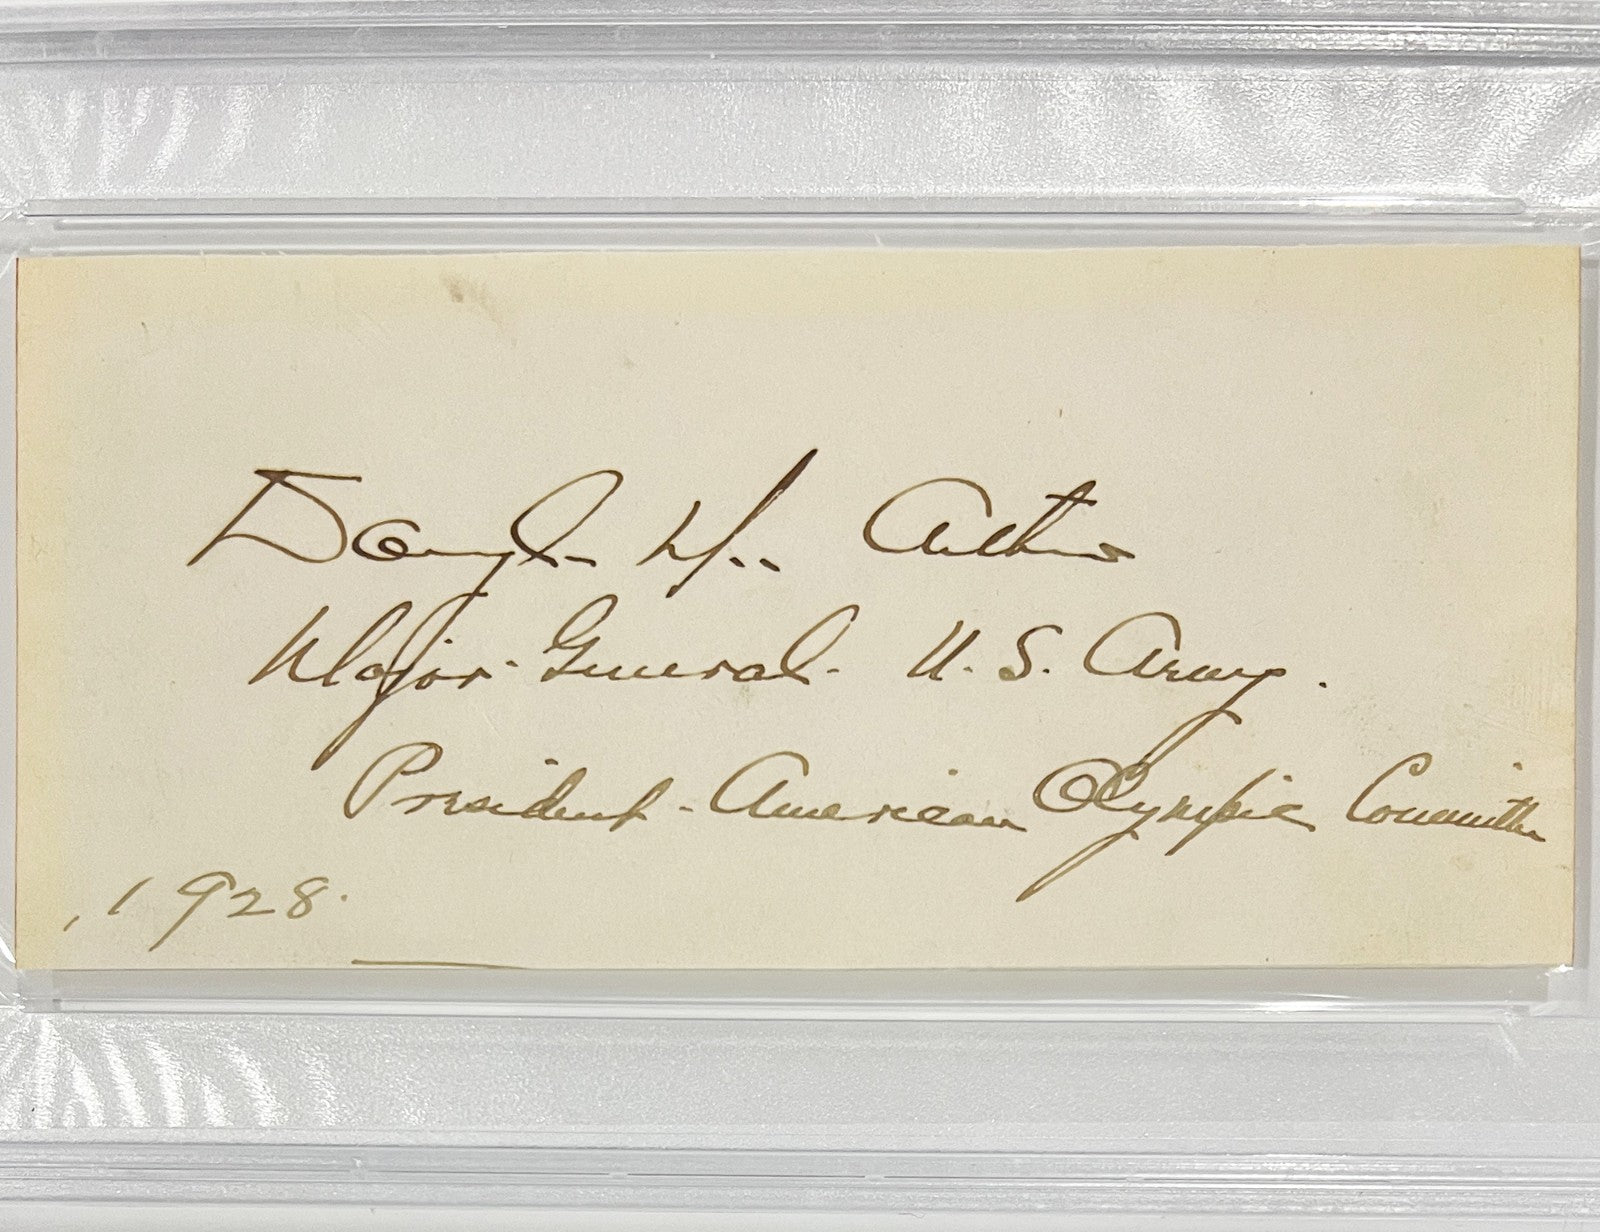 Douglas MacArthur
Major-General. U.S. Army.
President-American Olympic Committee
, 1928.